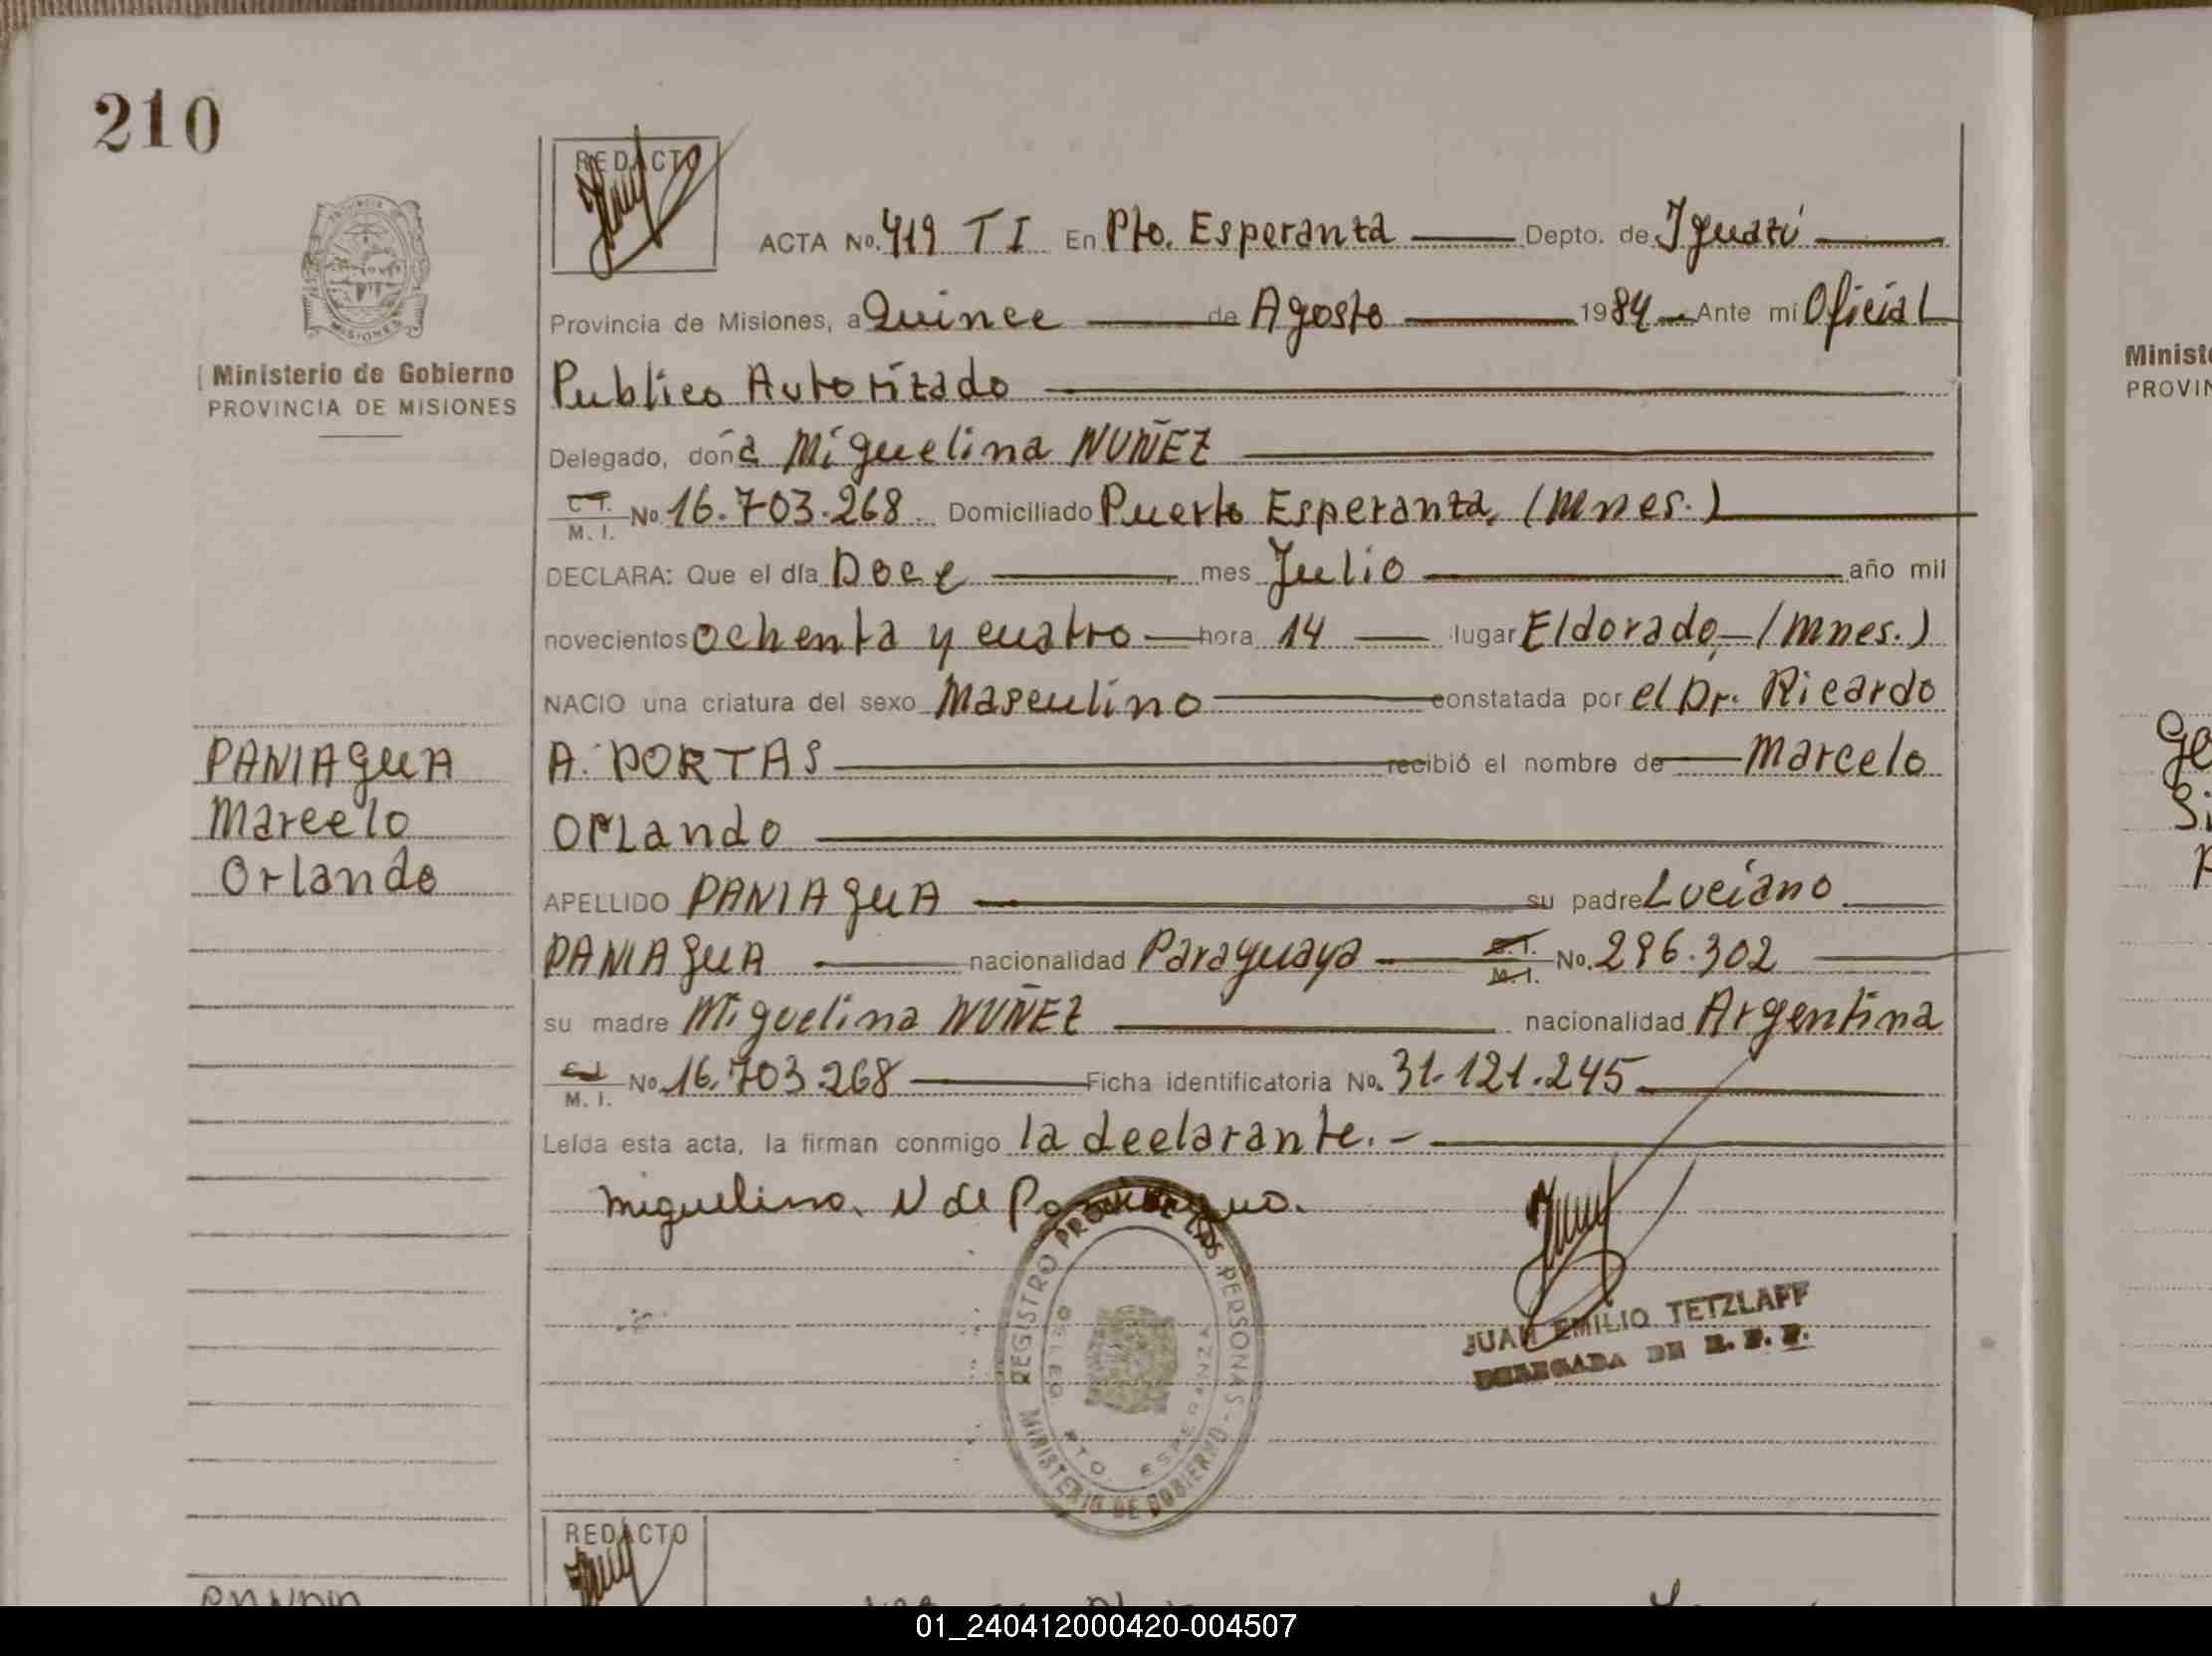 210
REDACTO
ACTA No. 419 T I En Pto. Esperanza Depto. de Iguazú
Provincia de Misiones, a Quince de Agosto 1984 Ante mí Oficial
Publico Autorizado
Delegado, doña Miguelina NUÑEZ
C.I. M. I. No 16.703.268. Domiciliado Puerto Esperanza, (Mnes.)
DECLARA: Que el día Doce mes Julio año mil
novecientos Ochenta y cuatro hora 14 lugar Eldorado, (Mnes.)
NACIO una criatura del sexo Masculino constatada por el Dr. Ricardo
A. PORTAS recibió el nombre de Marcelo
Orlando
APELLIDO PANIAGUA su padre Luciano
PANIAGUA nacionalidad Paraguaya C.I. M.I. No. 296.302
su madre Miguelina NUÑEZ nacionalidad Argentina
C.I. M. I. No 16.703.268 Ficha identificatoria No. 31.121.245
Leída esta acta, la firman conmigo la declarante.-
Miguelina. N de Paniagua.
REGISTRO PROV. DE LAS PERSONAS - MINISTERIO DE GOBIERNO
DELEG. PTO. ESPERANZA
JUAN EMILIO TETZLAFF
DELEGADA DE R. P. P.
PROVINCIA
MISIONES
Ministerio de Gobierno
PROVINCIA DE MISIONES
PANIAGUA
Marcelo
Orlando
REDACTO
Minist
PROVIN
01_240412000420-004507